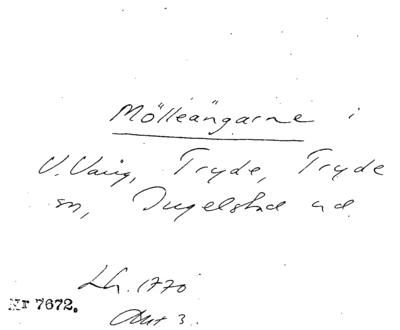 Mölleängarne i
V. Vång, Tryde, Tryde
sn, Ingelstad hd.
Lh. 1770
Nr 7672.
Akt 3.